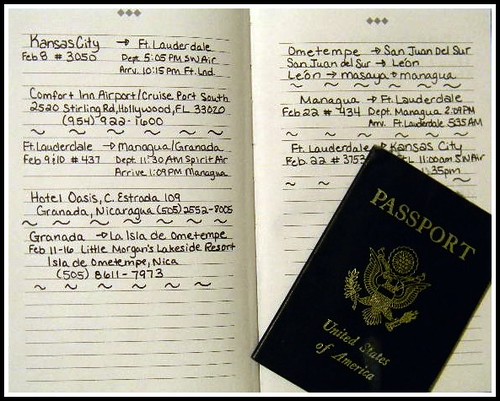 Kansas City → Ft. Lauderdale
Feb 8 # 3050 Dept. 5:05 PM SW Air
Arrv. 10:15 PM Ft. Lnd.
Comfort Inn Airport/Cruise Port South
2520 Stirling Rd, Hollywood, FL 33020
(954) 922-1600
Ft. Lauderdale → Managua/Granada
Feb 9 # 437 Dept. 11:30 AM Spirit Air
Arrive 1:09 PM Managua
Hotel Oasis, C. Estrada 109
Granada, Nicaragua (505) 2552-8005
Granada → La Isla de Ometempe
Feb 11-16 Little Morgan's Lakeside Resort
Isla de Ometempe, Nica
(505) 8611-7973
Ometempe → San Juan Del Sur
San Juan del Sur → León
León → masaya → managua
Managua → Ft. Lauderdale
Feb 22 # 434 Dept. Managua 2:09 PM
Arrv. Ft. Lauderdale 5:35 AM
Ft. Lauderdale → Kansas City
Feb. 22 # 3753 11:00am SW Air
:35pm
PASSPORT
United States
of America